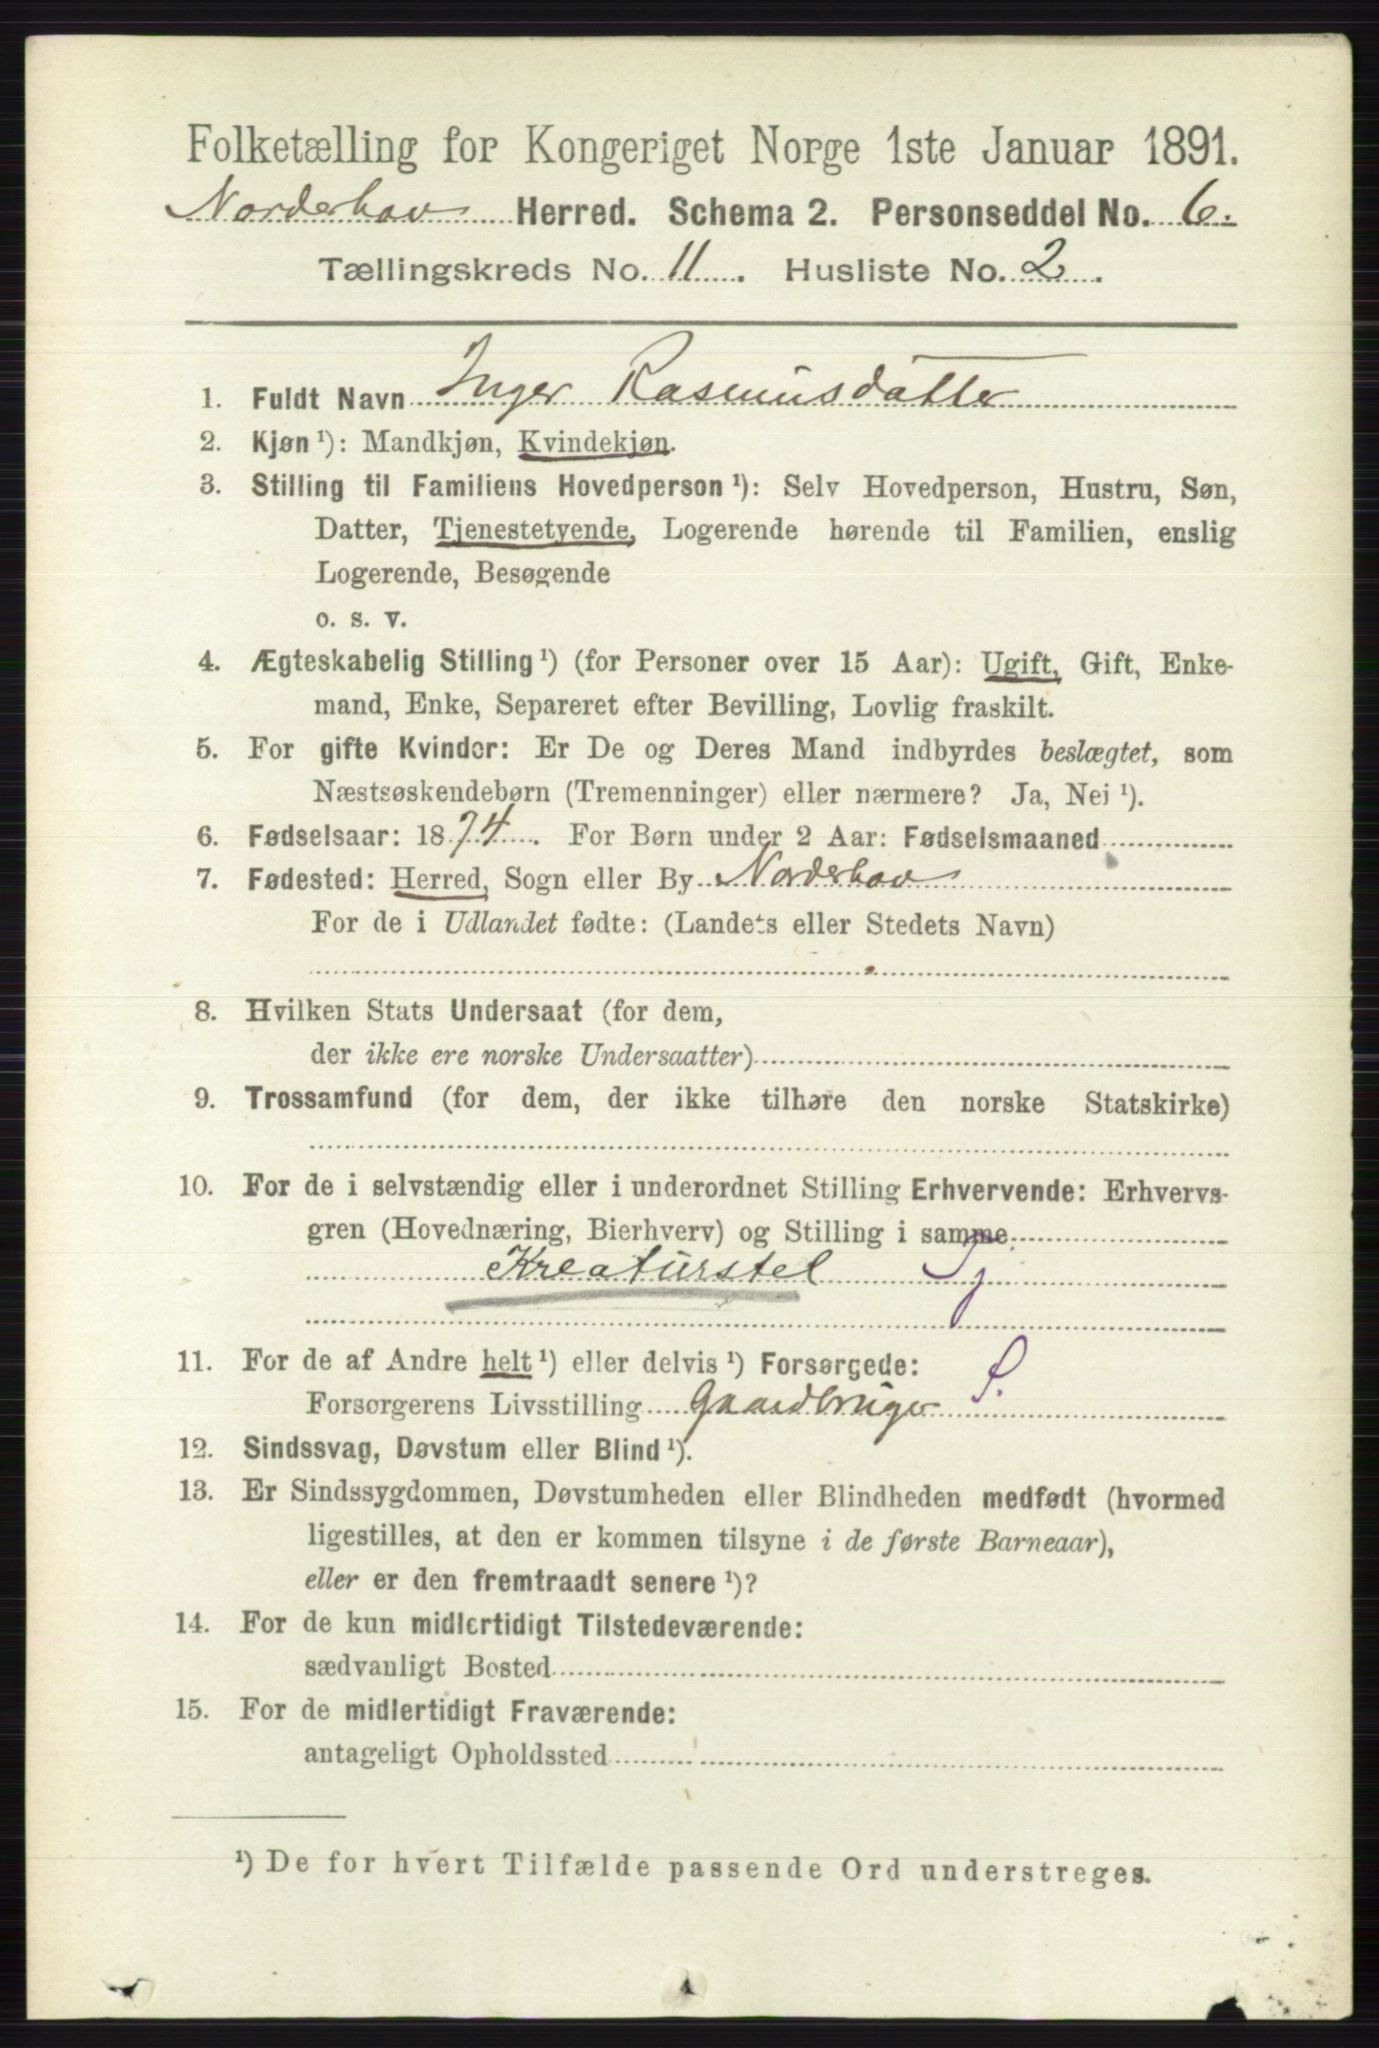 Folketælling for Kongeriget Norge 1ste Januar 1891.
Norderhov Herred. Schema 2. Personseddel No. 6.
Tællingskreds No. 11. Husliste No. 2.
1. Fuldt Navn Inger Rasmusdatter
2. Kjøn ¹): Mandkjøn, Kvindekjøn.
3. Stilling til Familiens Hovedperson ¹): Selv Hovedperson, Hustru, Søn,
Datter, Tjenestetyende, Logerende hørende til Familien, enslig
Logerende, Besøgende
o. s. v.
4. Ægteskabelig Stilling ¹) (for Personer over 15 Aar): Ugift, Gift, Enke-
mand, Enke, Separeret efter Bevilling, Lovlig fraskilt.
5. For gifte Kvinder: Er De og Deres Mand indbyrdes beslægtet, som
Næstsøskendebørn (Tremenninger) eller nærmere? Ja, Nei ¹).
6. Fødselsaar: 1874. For Børn under 2 Aar: Fødselsmaaned
7. Fødested: Herred, Sogn eller By Norderhov
For de i Udlandet fødte: (Landets eller Stedets Navn)
8. Hvilken Stats Undersaat (for dem,
der ikke ere norske Undersaatter)
9. Trossamfund (for dem, der ikke tilhøre den norske Statskirke)
10. For de i selvstændig eller i underordnet Stilling Erhvervende: Erhvervs-
gren (Hovednæring, Bierhverv) og Stilling i samme
Kreaturstel Tj
11. For de af Andre helt ¹) eller delvis ¹) Forsørgede:
Forsørgerens Livsstilling Gaardbruger S.
12. Sindssvag, Døvstum eller Blind ¹).
13. Er Sindssygdommen, Døvstumheden eller Blindheden medfødt (hvormed
ligestilles, at den er kommen tilsyne i de første Barneaar),
eller er den fremtraadt senere ¹)?
14. For de kun midlertidigt Tilstedeværende:
sædvanligt Bosted
15. For de midlertidigt Fraværende:
antageligt Opholdssted
¹) De for hvert Tilfælde passende Ord understreges.